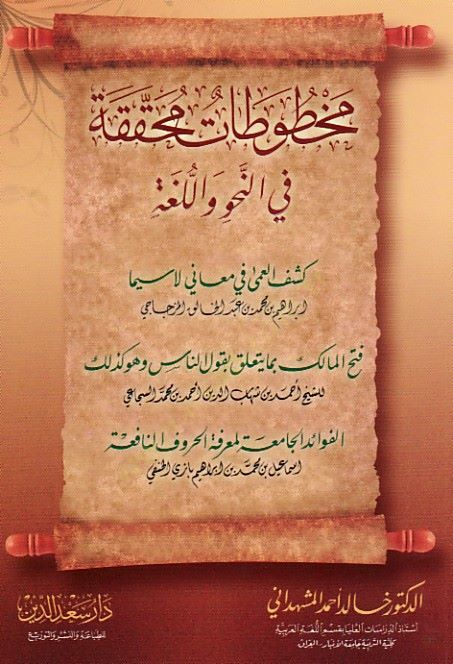 مَخْطُوطَاتٌ مُحَقَّقَة
فِي النَّحْوِ وَاللُّغَةِ
كشف العمى في معاني لاسيما
ابراهيم بن محمد بن عبد الخالق المزجاجي
فتح المالك بما يتعلق بقول الناس وهو كذلك
للشيخ أحمد بن شهاب الدين أحمد بن محمد السجاعي
الفوائد الجامعة لمعرفة الحروف النافعة
اسماعيل بن محمد بن ابراهيم بازي الحنفي
الدكتور خالد أحمد المشهداني
أستاذ الدراسات العليا بقسم اللغة العربية
كلية التربية جامعة الأنبار - العراق
دار سعد الدين
للطباعة والنشر والتوزيع